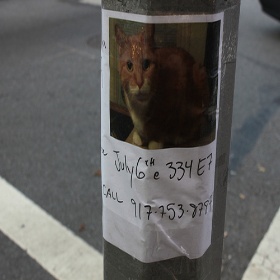 July 6TH e 334 E7
CALL 917-753-879